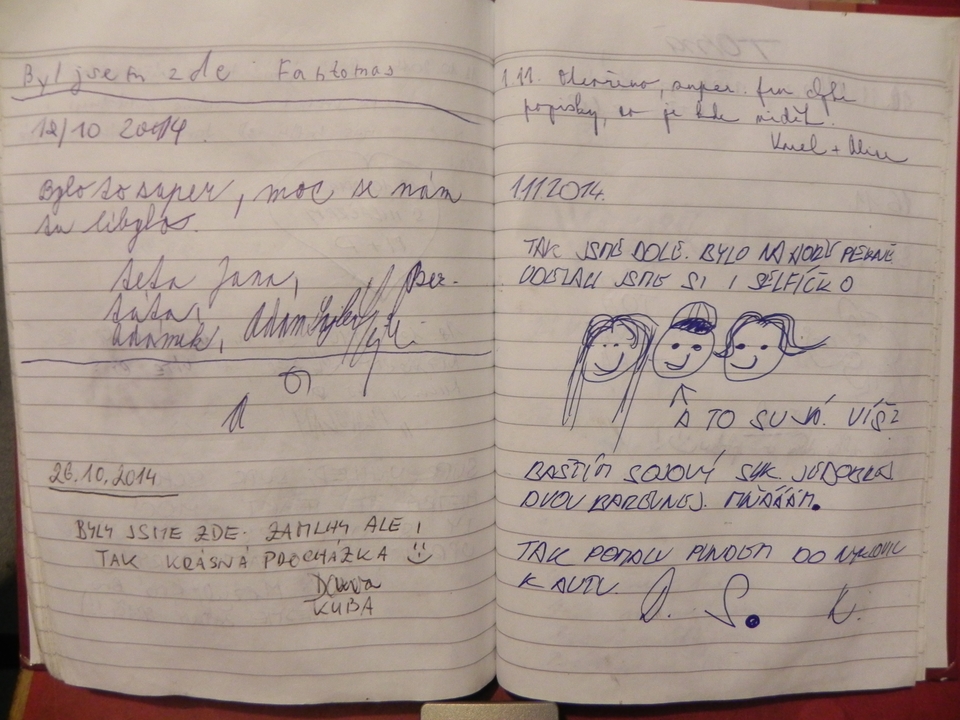 Byl jsem zde Fantomas
12/10 2014
Bylo to super, moc se nám
tu líbylo.
teta Jana,
táta,
Adámek,
26.10.2014
BYLY JSME ZDE. ZA MLHY ALE I
TAK KRÁSNÁ PROCHÁZKA
KUBA
1.11. Otevřeno, super.
popisky, co je kde vidět.
Karel +
1.11.2014.
TAK JSME DOLE. BYLO NAHOŘE PĚKNĚ
UDĚLALI JSME SI I SELFÍČKO
A TO SU JÁ. VÍŠ?
BAŠTÍM SOJOVÝ SUK.
DVOU BAREVNEJ. MŇÁÁÁM.
TAK POMALU PUNDEM DO
K AUTU.
D. S. K.